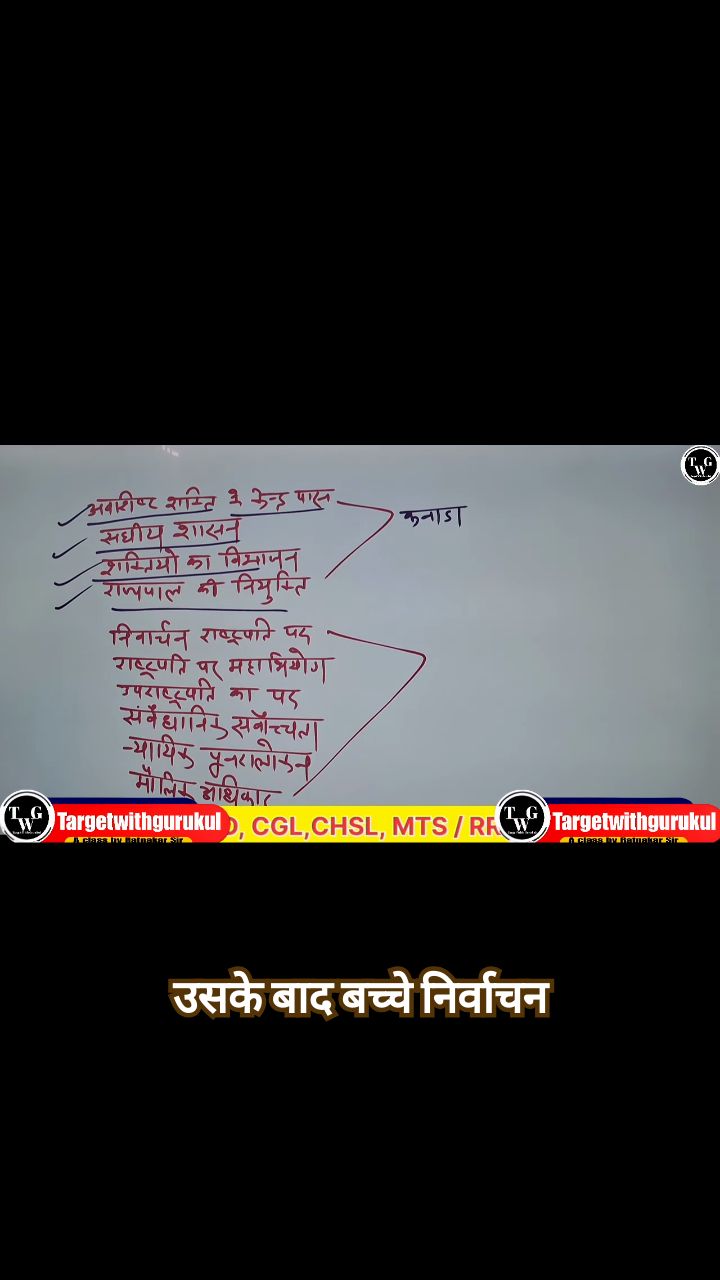 TWG
अवशिष्ट शक्ति केन्द्र पास
कनाडा
संघीय शासन
शक्तियो का विभाजन
राज्यपाल की नियुक्ति
निवार्चन राष्ट्रपति पद
राष्ट्रपति पर महाभियोग
उपराष्ट्रपति का पद
संवैधानिक सर्वोच्चता
न्यायिक पुनरालोकन
मौलिक अधिकार
TWG Targetwithgurukul D, CGL,CHSL, MTS / RR TWG Targetwithgurukul
A class by Ratnakar Sir A class by Ratnakar Sir
उसके बाद बच्चे निर्वाचन